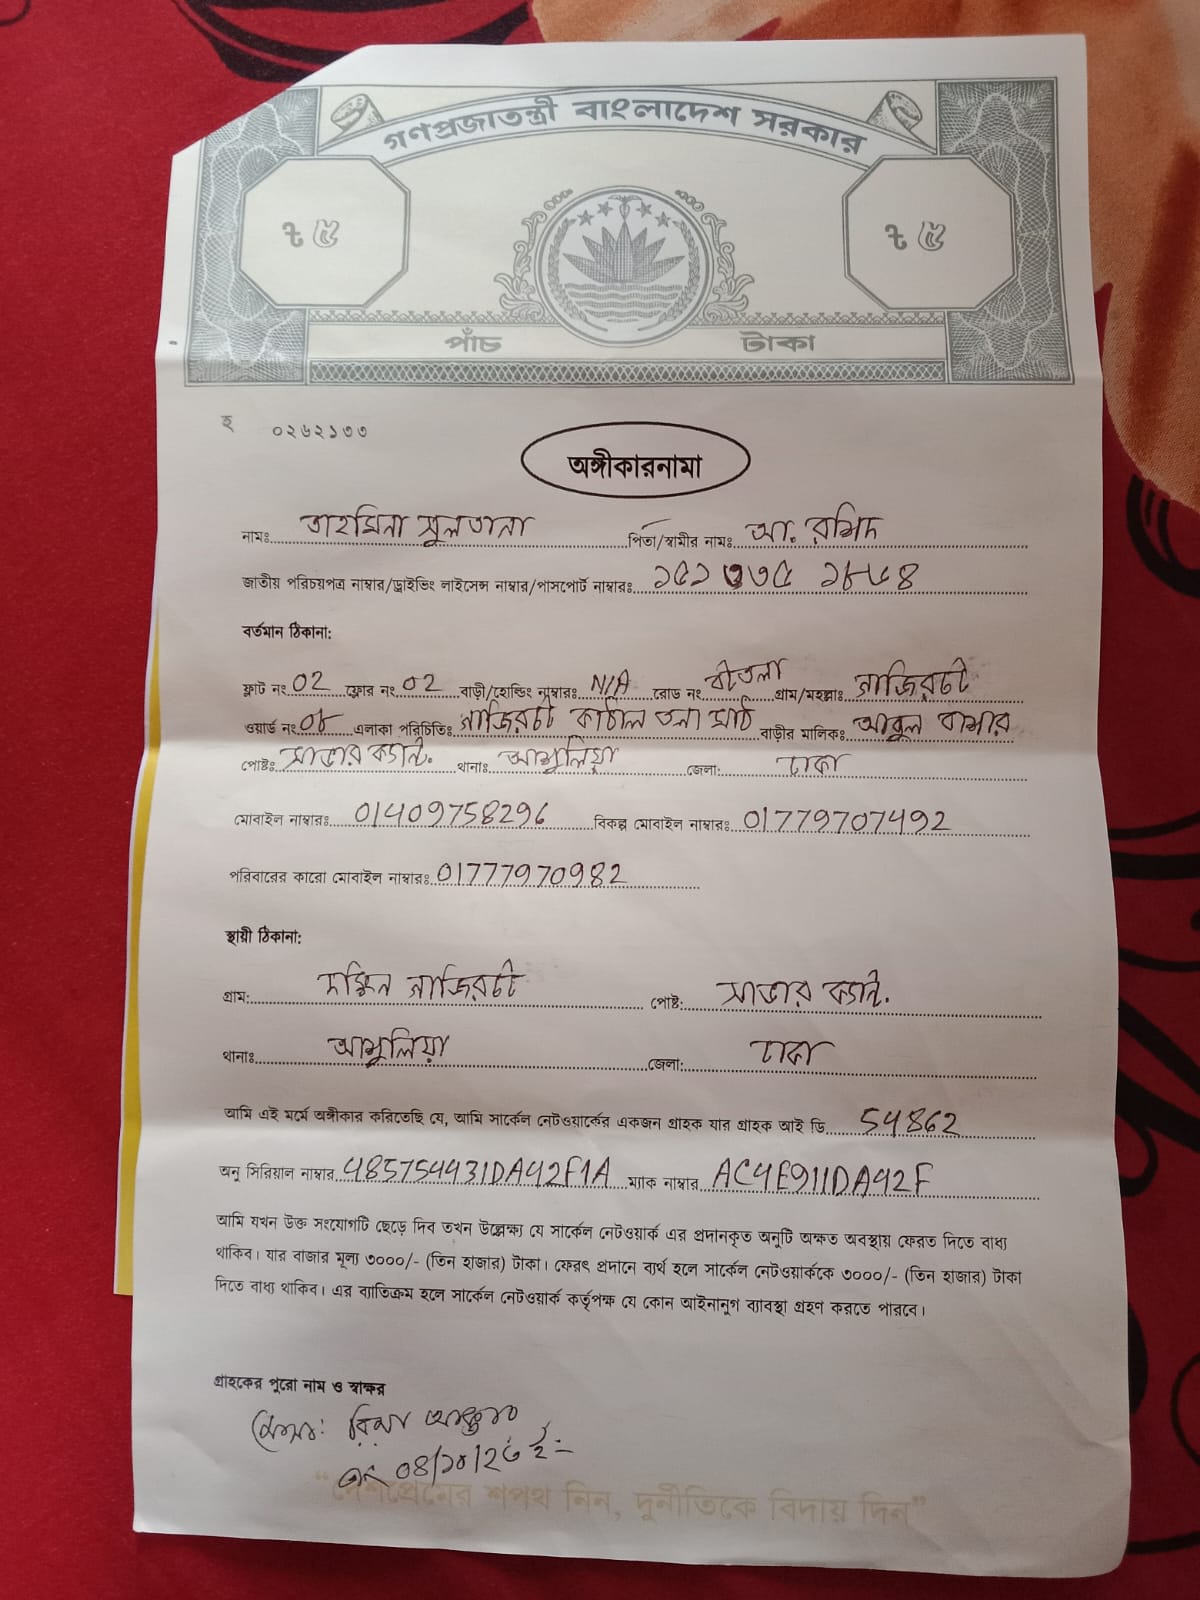 গণপ্রজাতন্ত্রী বাংলাদেশ সরকার
৳ ৫ ৳ ৫
পাঁচ টাকা
হ ০২৬২১৩৩
অঙ্গীকারনামা
নামঃ তাহমিনা সুলতানা পিতা/স্বামীর নামঃ আ. রশিদ
জাতীয় পরিচয়পত্র নাম্বার/ড্রাইভিং লাইসেন্স নাম্বার/পাসপোর্ট নাম্বারঃ ১৫১ ৩৩৫ ১৮৬৪
বর্তমান ঠিকানা:
ফ্লাট নং 02 ফ্লোর নং 02 বাড়ী/হোল্ডিং নাম্বারঃ N/A রোড নং গ্রাম/মহল্লাঃ
ওয়ার্ড নং 08 এলাকা পরিচিতিঃ কাঠাল তলা মাঠ বাড়ীর মালিকঃ আবুল বাসার
পোষ্টঃ সাভার ক্যান্ট. থানাঃ আশুলিয়া জেলা: ঢাকা
মোবাইল নাম্বারঃ 01409758296 বিকল্প মোবাইল নাম্বারঃ 01779707492
পরিবারের কারো মোবাইল নাম্বারঃ 01777970982
স্থায়ী ঠিকানা:
গ্রাম: দক্ষিন পোষ্ট: সাভার ক্যান্ট.
থানাঃ আশুলিয়া জেলা: ঢাকা
আমি এই মর্মে অঙ্গীকার করিতেছি যে, আমি সার্কেল নেটওয়ার্কের একজন গ্রাহক যার গ্রাহক আই ডি 54862
অনু সিরিয়াল নাম্বার 485754431DA42F1A ম্যাক নাম্বার AC4E911DA42F
আমি যখন উক্ত সংযোগটি ছেড়ে দিব তখন উল্লেক্ষ্য যে সার্কেল নেটওয়ার্ক এর প্রদানকৃত অনুটি অক্ষত অবস্থায় ফেরত দিতে বাধ্য
থাকিব। যার বাজার মূল্য ৩০০০/- (তিন হাজার) টাকা। ফেরৎ প্রদানে ব্যর্থ হলে সার্কেল নেটওয়ার্ককে ৩০০০/- (তিন হাজার) টাকা
দিতে বাধ্য থাকিব। এর ব্যাতিক্রম হলে সার্কেল নেটওয়ার্ক কর্তৃপক্ষ যে কোন আইনানুগ ব্যাবস্থা গ্রহণ করতে পারবে।
গ্রাহকের পুরো নাম ও স্বাক্ষর
মোসা:
০৪/১০/২৩ ইং
“দেশপ্রেমের শপথ নিন, দুর্নীতিকে বিদায় দিন”